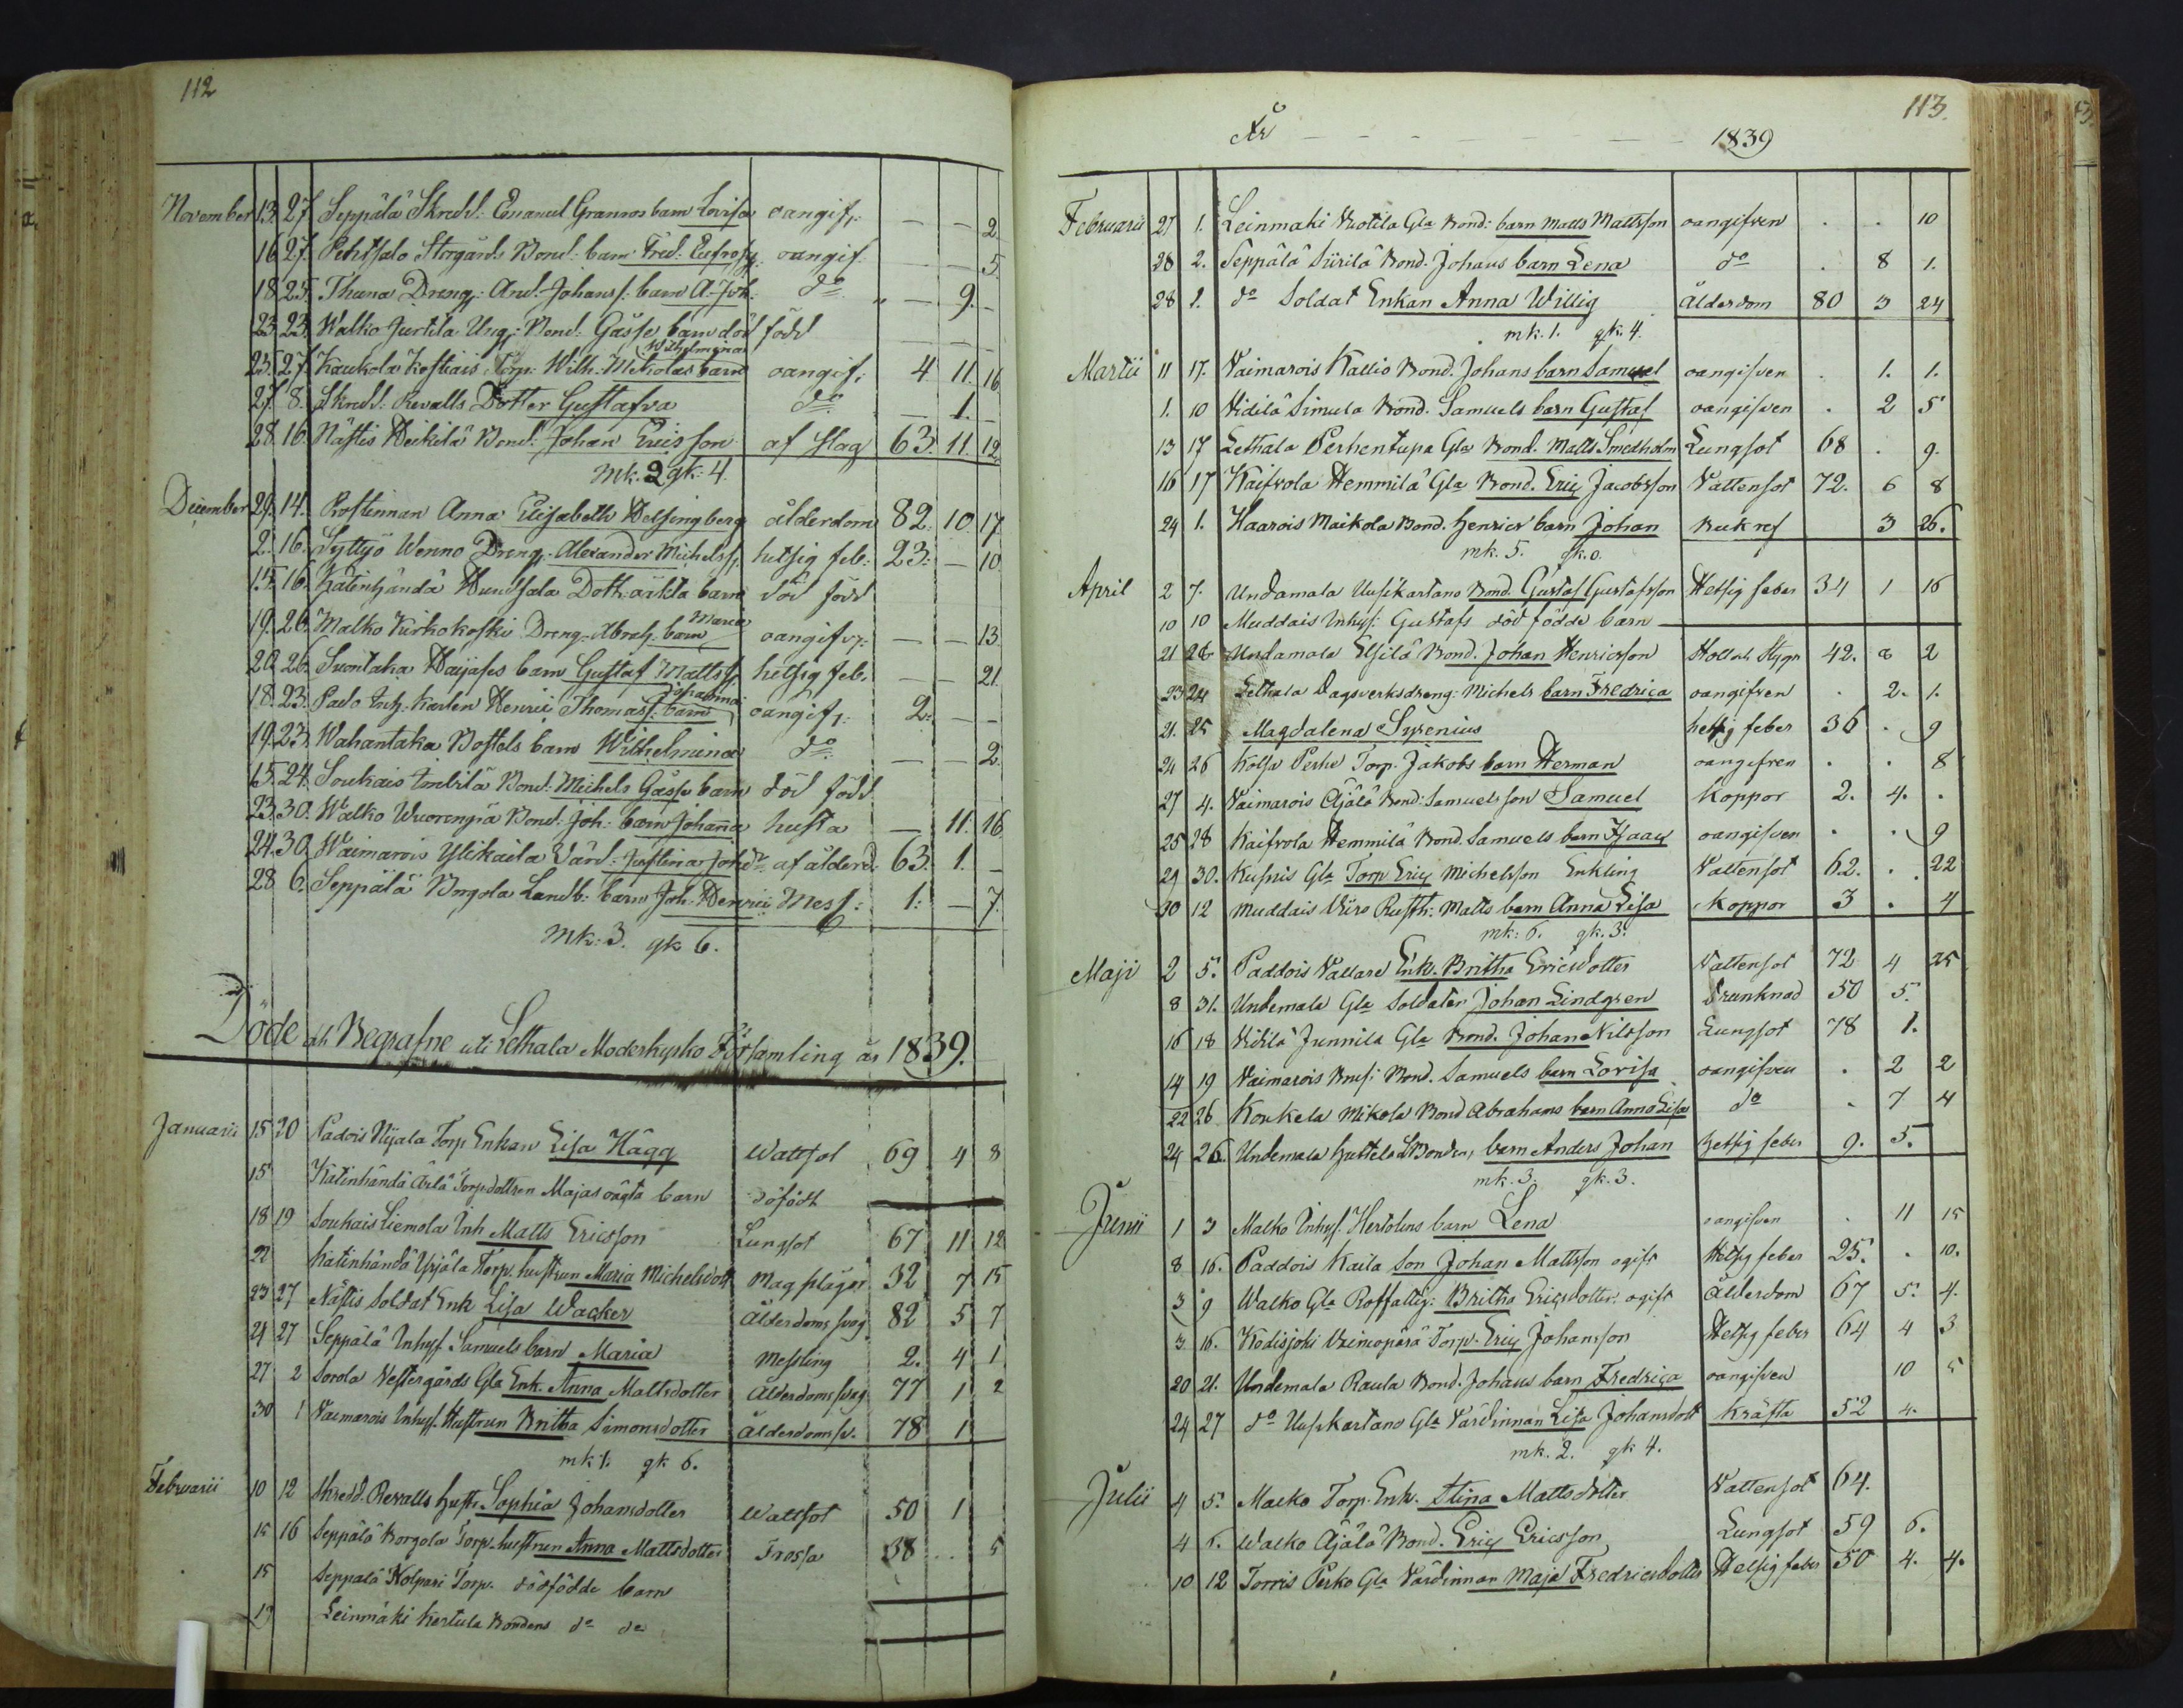 112
November 13. 27. Seppälä Skredd: Emanuel Granroos barn Lovisa oangif: — — 2.
16. 27. Pehtsalo Storgårds Bond: barn Fred: Eufrosy: oangif. — — 5.
18. 25. Thuna Dreng: And. Johanss: barn A. Joh. do — 9. —
23. 23. Walko Juttila Ung: Bond: Gässe barn död född
Wilhelmina
25. 27. Kaukola Kostiais Torp: Wilh. Mikolas barn oangif: 4 11. 16
27. 8. Skredd: Revalls Dotter Gustafva do — 1. —
28. 16. Nästis Heikilä Bond: Johan Ericsson af slag 63. 11. 12.
mk. 2 qk. 4.
December 29. 14. Rostinnan Anna Elisabeth Helsingberg ålderdom 82. 10. 17.
2. 16. Syttyö Wenno Dreng. Alexander Michelss. hetsig feb: 23. — 10.
15. 16. Katinhändä Hundsala Dott: oäkta barn död född
Maria
19. 26. Malko Kirkokoski Dreng. Abrah. barn oangifv: — — 13.
20. 26. Suontaka Haijases barn Gustaf Mattss. hetsig feb. — — 21.
Johanna
18. 23. Pado Inh. Karlen Henric Thomass: barn oangif: 2. — —
19. 23. Wahantaka Bostels barn Wilhelmina do — — 2.
15. 24. Soukais Bond: Michels Gässe barn död född
23. 30. Walko Wuorenpä Bond: Joh: barn Johanna husta — 11. 16.
24. 30. Waimarois Ylikaila Värd: Justina Joh:dr af ålderd. 63. 1. —
28 6. Seppälä Borgola Landb: barn Joh. Henric Mess: 1. — 7.
mk: 3. qk 6.
Döde och Begrafne uti Lethala Moderkyrko Församling år 1839.
Januarii 15 20 Padois Nijala Torp Enkan Lisa Hägg Wattsot 69 4 8
15 Katinhändä Ärlä Torpdottren Majas oägta barn döfödt
18 19 Soukais Liemola Inh. Matts Ericsson Lungsot 67 11 12
22 Katinhändä Yrjäla Torp. hustrun Maria Michelsdott Mag plågor 32 7 15
23 27 Nästis Soldat Enk Lisa Wacker Ålderdoms svag 82 5 7
24 27 Seppälä Inhys. Samuels barn Maria Messling 2. 4 1
27 2 Sorola Vestergårds Gla Enk. Anna Mattsdotter Ålderdoms svag 77 1 2
30 1 Vaimarois Inhys. Hustrun Britha Simonsdotter ålderdoms sv. 78 1
mk 1. qk 6.
Februarii 10 12 Skredd. Revalls hust. Sophia Johansdotter Wattsot 50 1
15 16 Seppälä Borgola Torp. hustrun Anna Mattsdotter Frossa 38 . . 5
15 Seppälä Holpari Torp. dödfödde barn
17 Leinmäki Kertula Bondens do do
113.
År — — — — — 1839
Februarii 27 1. Leinmaki Vuotila Gla Bond: barn Matts Mattsson oangifven . . 10
28 2. Seppälä Siirilä Bond. Johans barn Lena do . 8 1.
28 1. do Soldat Enkan Anna Willig Ålderdom 80 3 24
mk. 1. qk. 4.
Martii 11 17. Vaimarois Kallio Bond. Johans barn Samuel oangifven . 1. 1.
1. 10 Hidilä Simula Bond. Samuels barn Gustaf oangifven . 2 5
13 17 Lethala Perhentupa Gla Bond. Matts Smedholm Lungsot 68 . 9.
16 17 Kaifvola Hemmilä Gla Bond. Eric Jacobsson Vattensot 72. 6 8
24 1. Haarois Maikola Bond. Henrics barn Johan Buk ref 3 26.
mk. 5. qk. 0.
April 2 7. Undamala Uusikartano Bond. Gustaf Gustafsson Hetsig feber 34 1 16
10 10 Muddais Inhys: Gustafs död födde barn
21 28 Undamala Elsilä Bond. Johan Henricsson Håll o. Stygn 42. 2
23 24 Lethala Dagsverksdreng: Michels barn Fredrica oangifven . 2. 1.
21. 25 Magdalena Syrenius hetsig feber 36 . 9
24 26 Kolsa Perhe Torp. Jakobs barn Herman oangifven . . 8
27 4. Vaimarois Äjälä Bond: Samuels son Samuel Koppor 2. 4. .
25 28 Kaifvola Hemmilä Bond. Samuels barn Isaac oangifven . . 9
29 30. Kusnis Gla Torp Eric Michelsson Enkling Vattensot 62. . 22
30 12 Muddais Viiro Rusth: Matts barn Anna Lisa Koppor 3 . 4
mk: 6. qk. 3.
Maji 2 5. Paddois Vallare Enk. Britha Ericsdotter Vattensot 72 4 25
8 31. Undemala Gla Soldaten Johan Lindgren Drunknad 50 5.
16 18 Hidilä Junnila Gla Bond. Johan Nilsson Lungsot 78 1.
14 19 Vaimarois Bond. Samuels barn Lovisa oangifven . 2 2
22 26 Konkela Mikola Bond Abrahams barn Anna Lisa do . 7 4
24 26 Undemala Huttela Bonden, barn Anders Johan hetsig feber 9. 5.
mk. 3. qk. 3.
Junii 1 3 Malko Inhys. Hertolins barn Lena oangifven . 11 15
8 16. Paddois Kaila son Johan Mattsson ogift Hetsig feber 25. . 10.
3 9 Walko Gla Rotfattig: Britha Ericsdotter ogift Ålderdom 67 5. 4.
3. 16. Kodisjoki Vainiopärä Torp. Eric Johansson Hetsig feber 64 4 3
20 21. Undemala Raula Bond. Johans barn Fredrica oangifven 10 5
24 27 do Uusikartano Gla Värdinnan Lisa Johansdott Kräfta 52 4.
mk. 2. qk 4.
Julii 4 5. Malko Torp. Enk. Stina Mattsdotter Vattensot 64.
4 6. Walko Äjälä Bond. Eric Ericsson Lungsot 59 6.
10 12 Torris Perko Gla Värdinnan Maja Fredricsdotter Hetsig feber 50 4. 4.